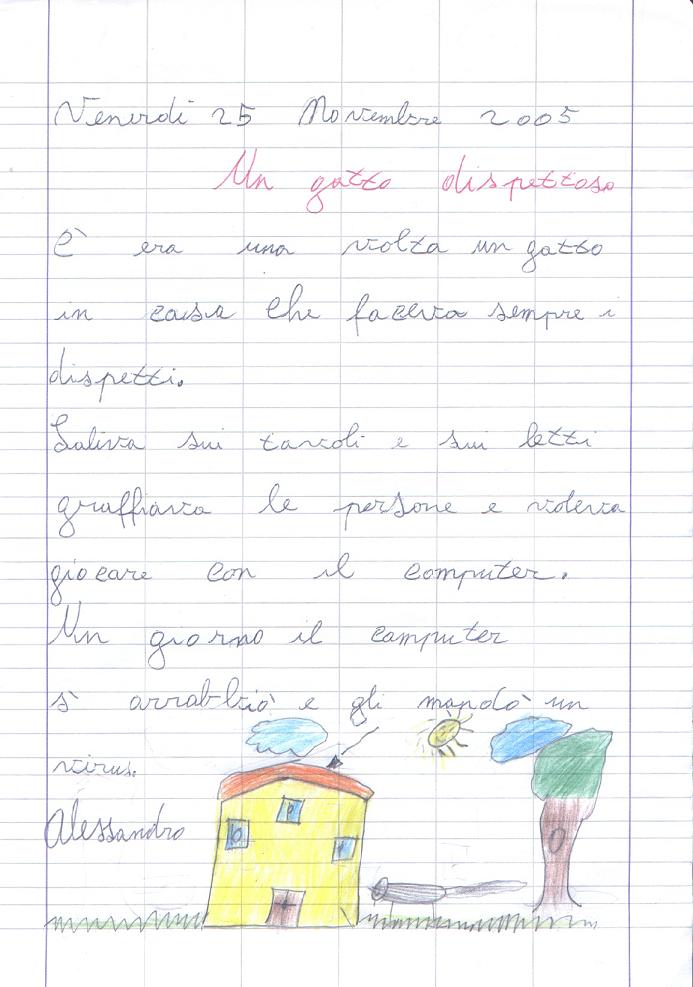 Venerdi 25 Novembre 2005
Un gatto dispettoso
C'era una volta un gatto
in casa che faceva sempre i
dispetti.
Saliva sui tavoli e sui letti
graffiava le persone e voleva
giocare con il computer.
Un giorno il computer
s'arrabbiò e gli mandò un
virus.
Alessandro